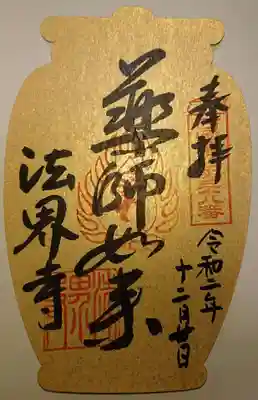 奉拝
令和二年
十二月廿日
薬師如来
法界寺